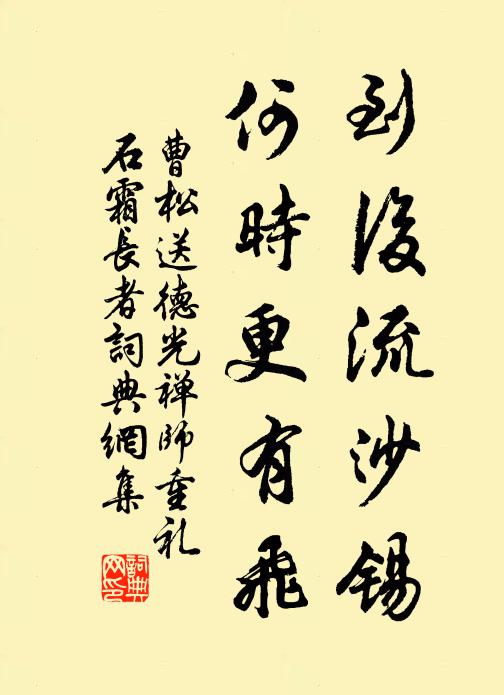 到後流沙錫
何時更有飛
曹松送德光禅師重礼
石霜長者詞典網集
詞典
网印